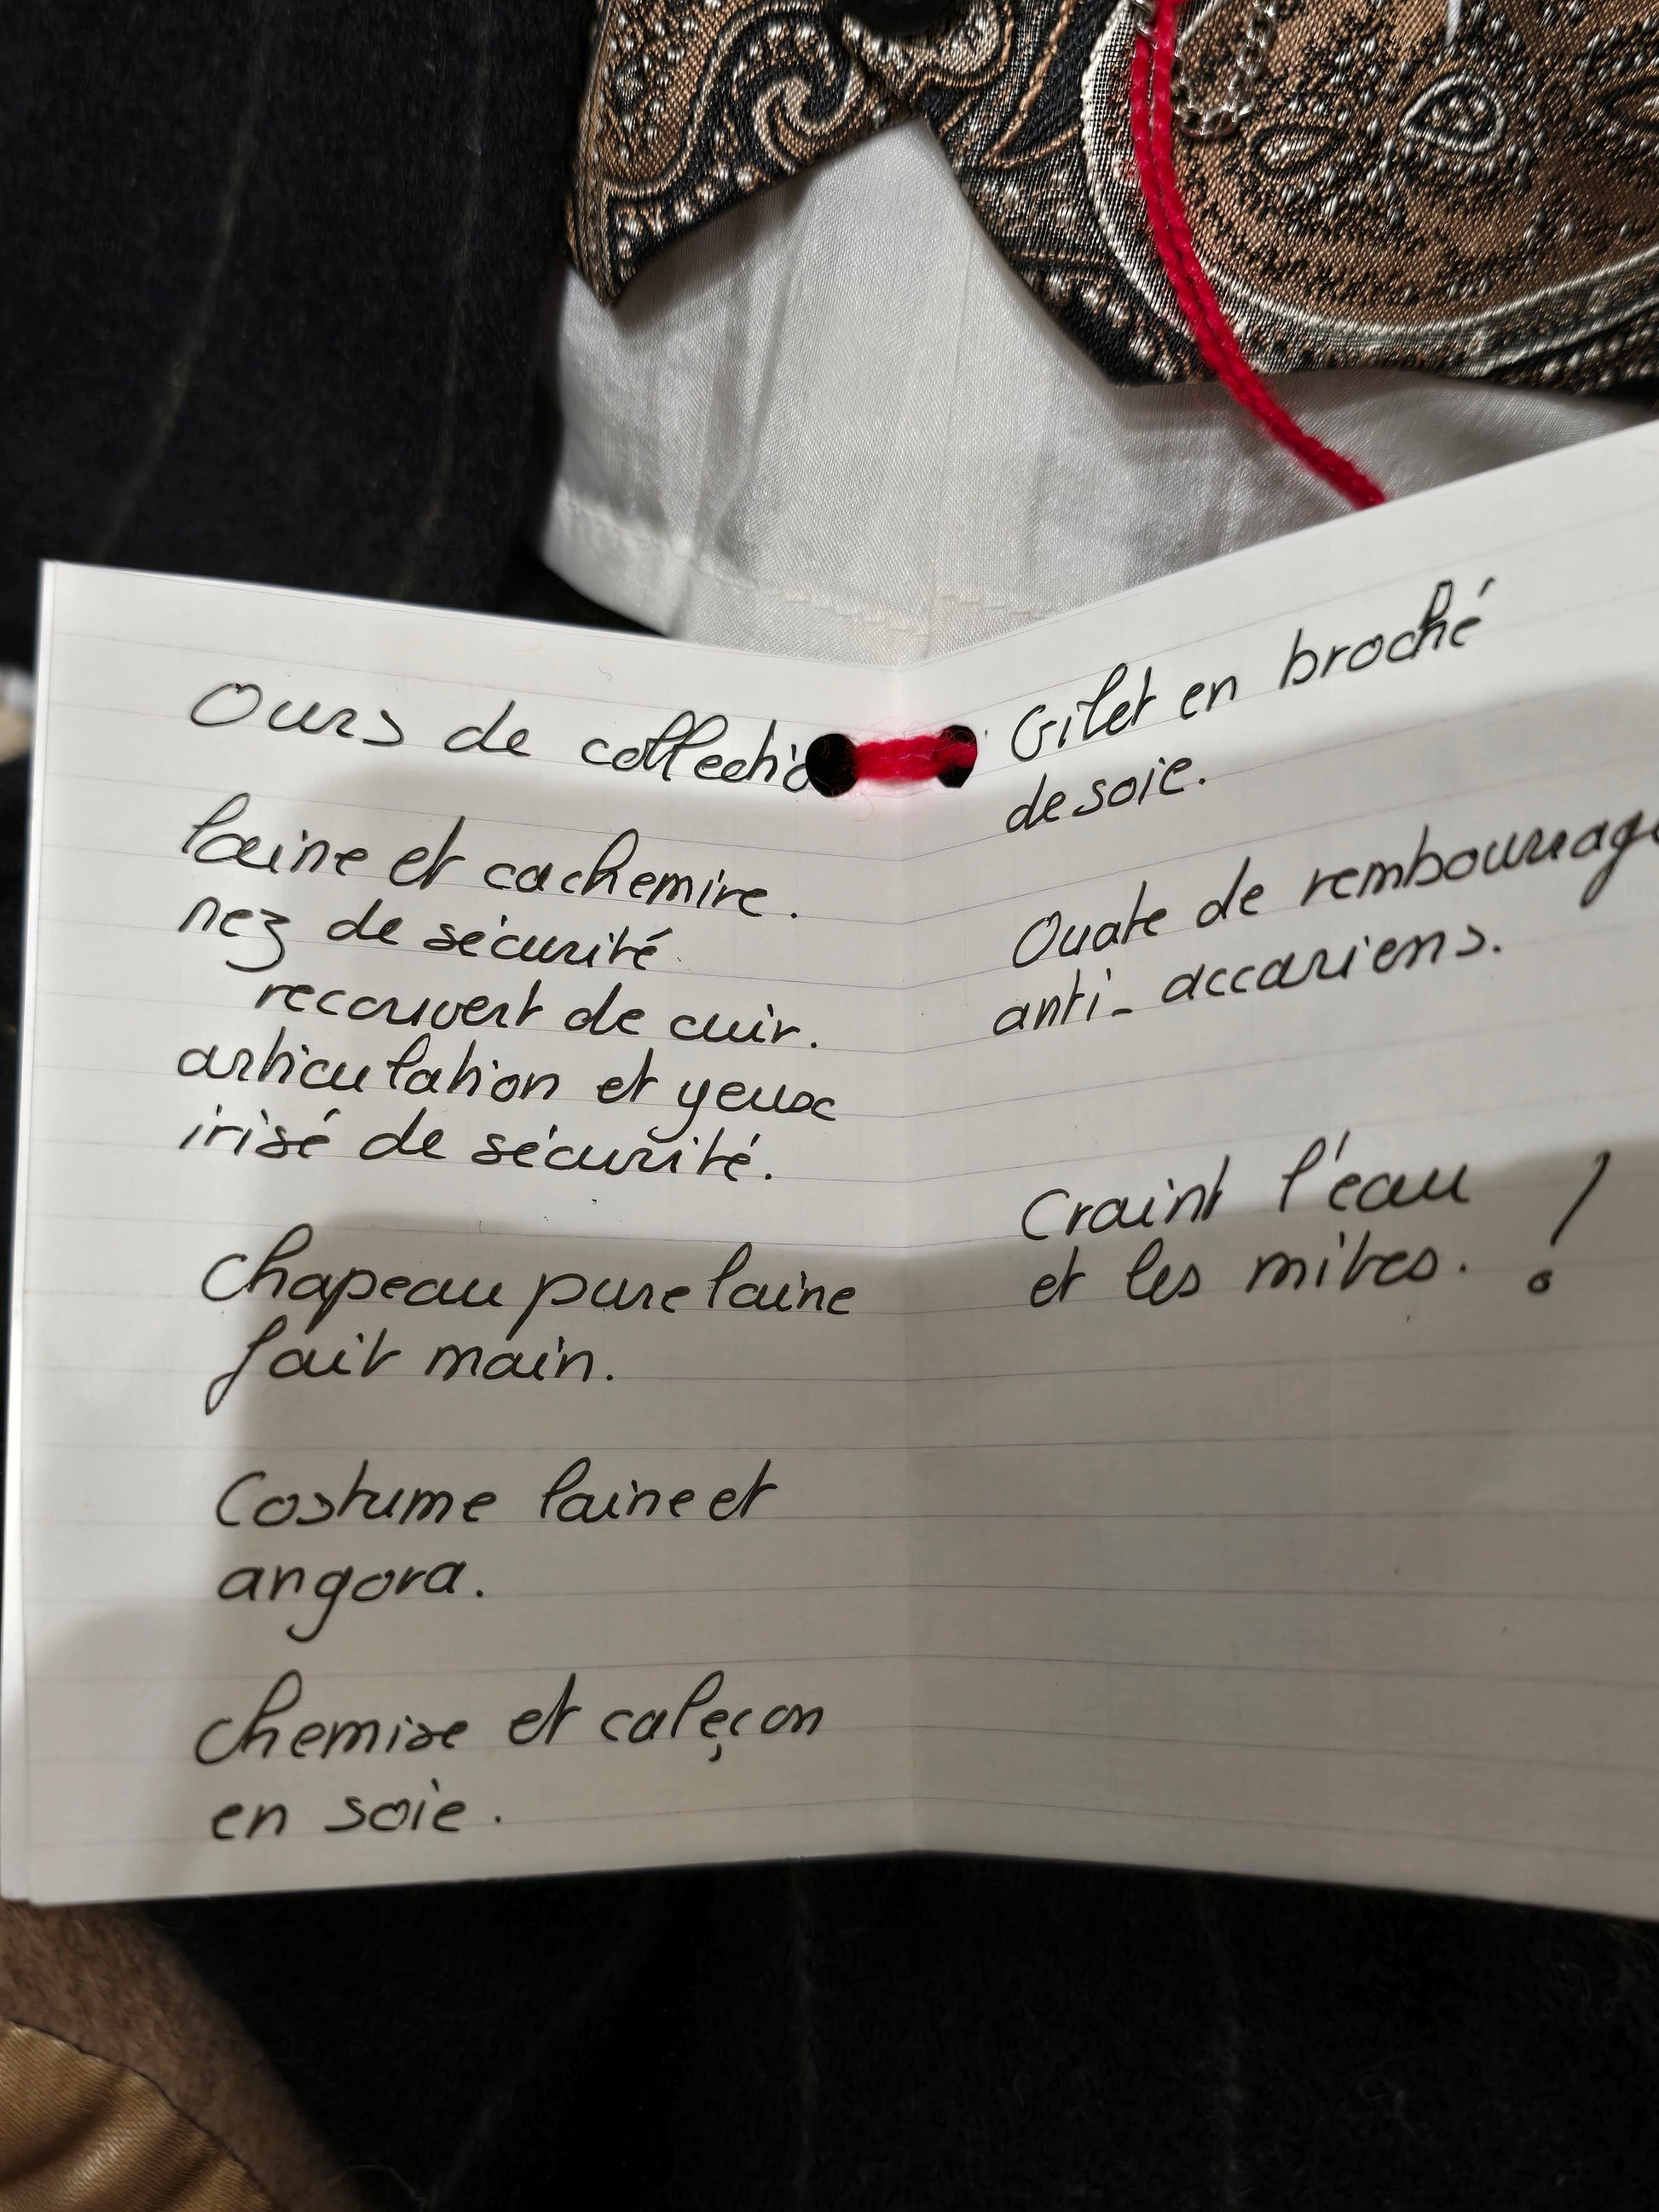 Ours de collectio
laine et cachemire.
nez de sécurité
recouvert de cuir.
articulation et yeux
irisé de sécurité.
Chapeau pure laine
fait main.
Costume laine et
angora.
Chemise et caleçon
en soie.
Gilet en broché
de soie.
Ouate de rembourrage
anti-accariens.
Craint l'eau
et les mites. !